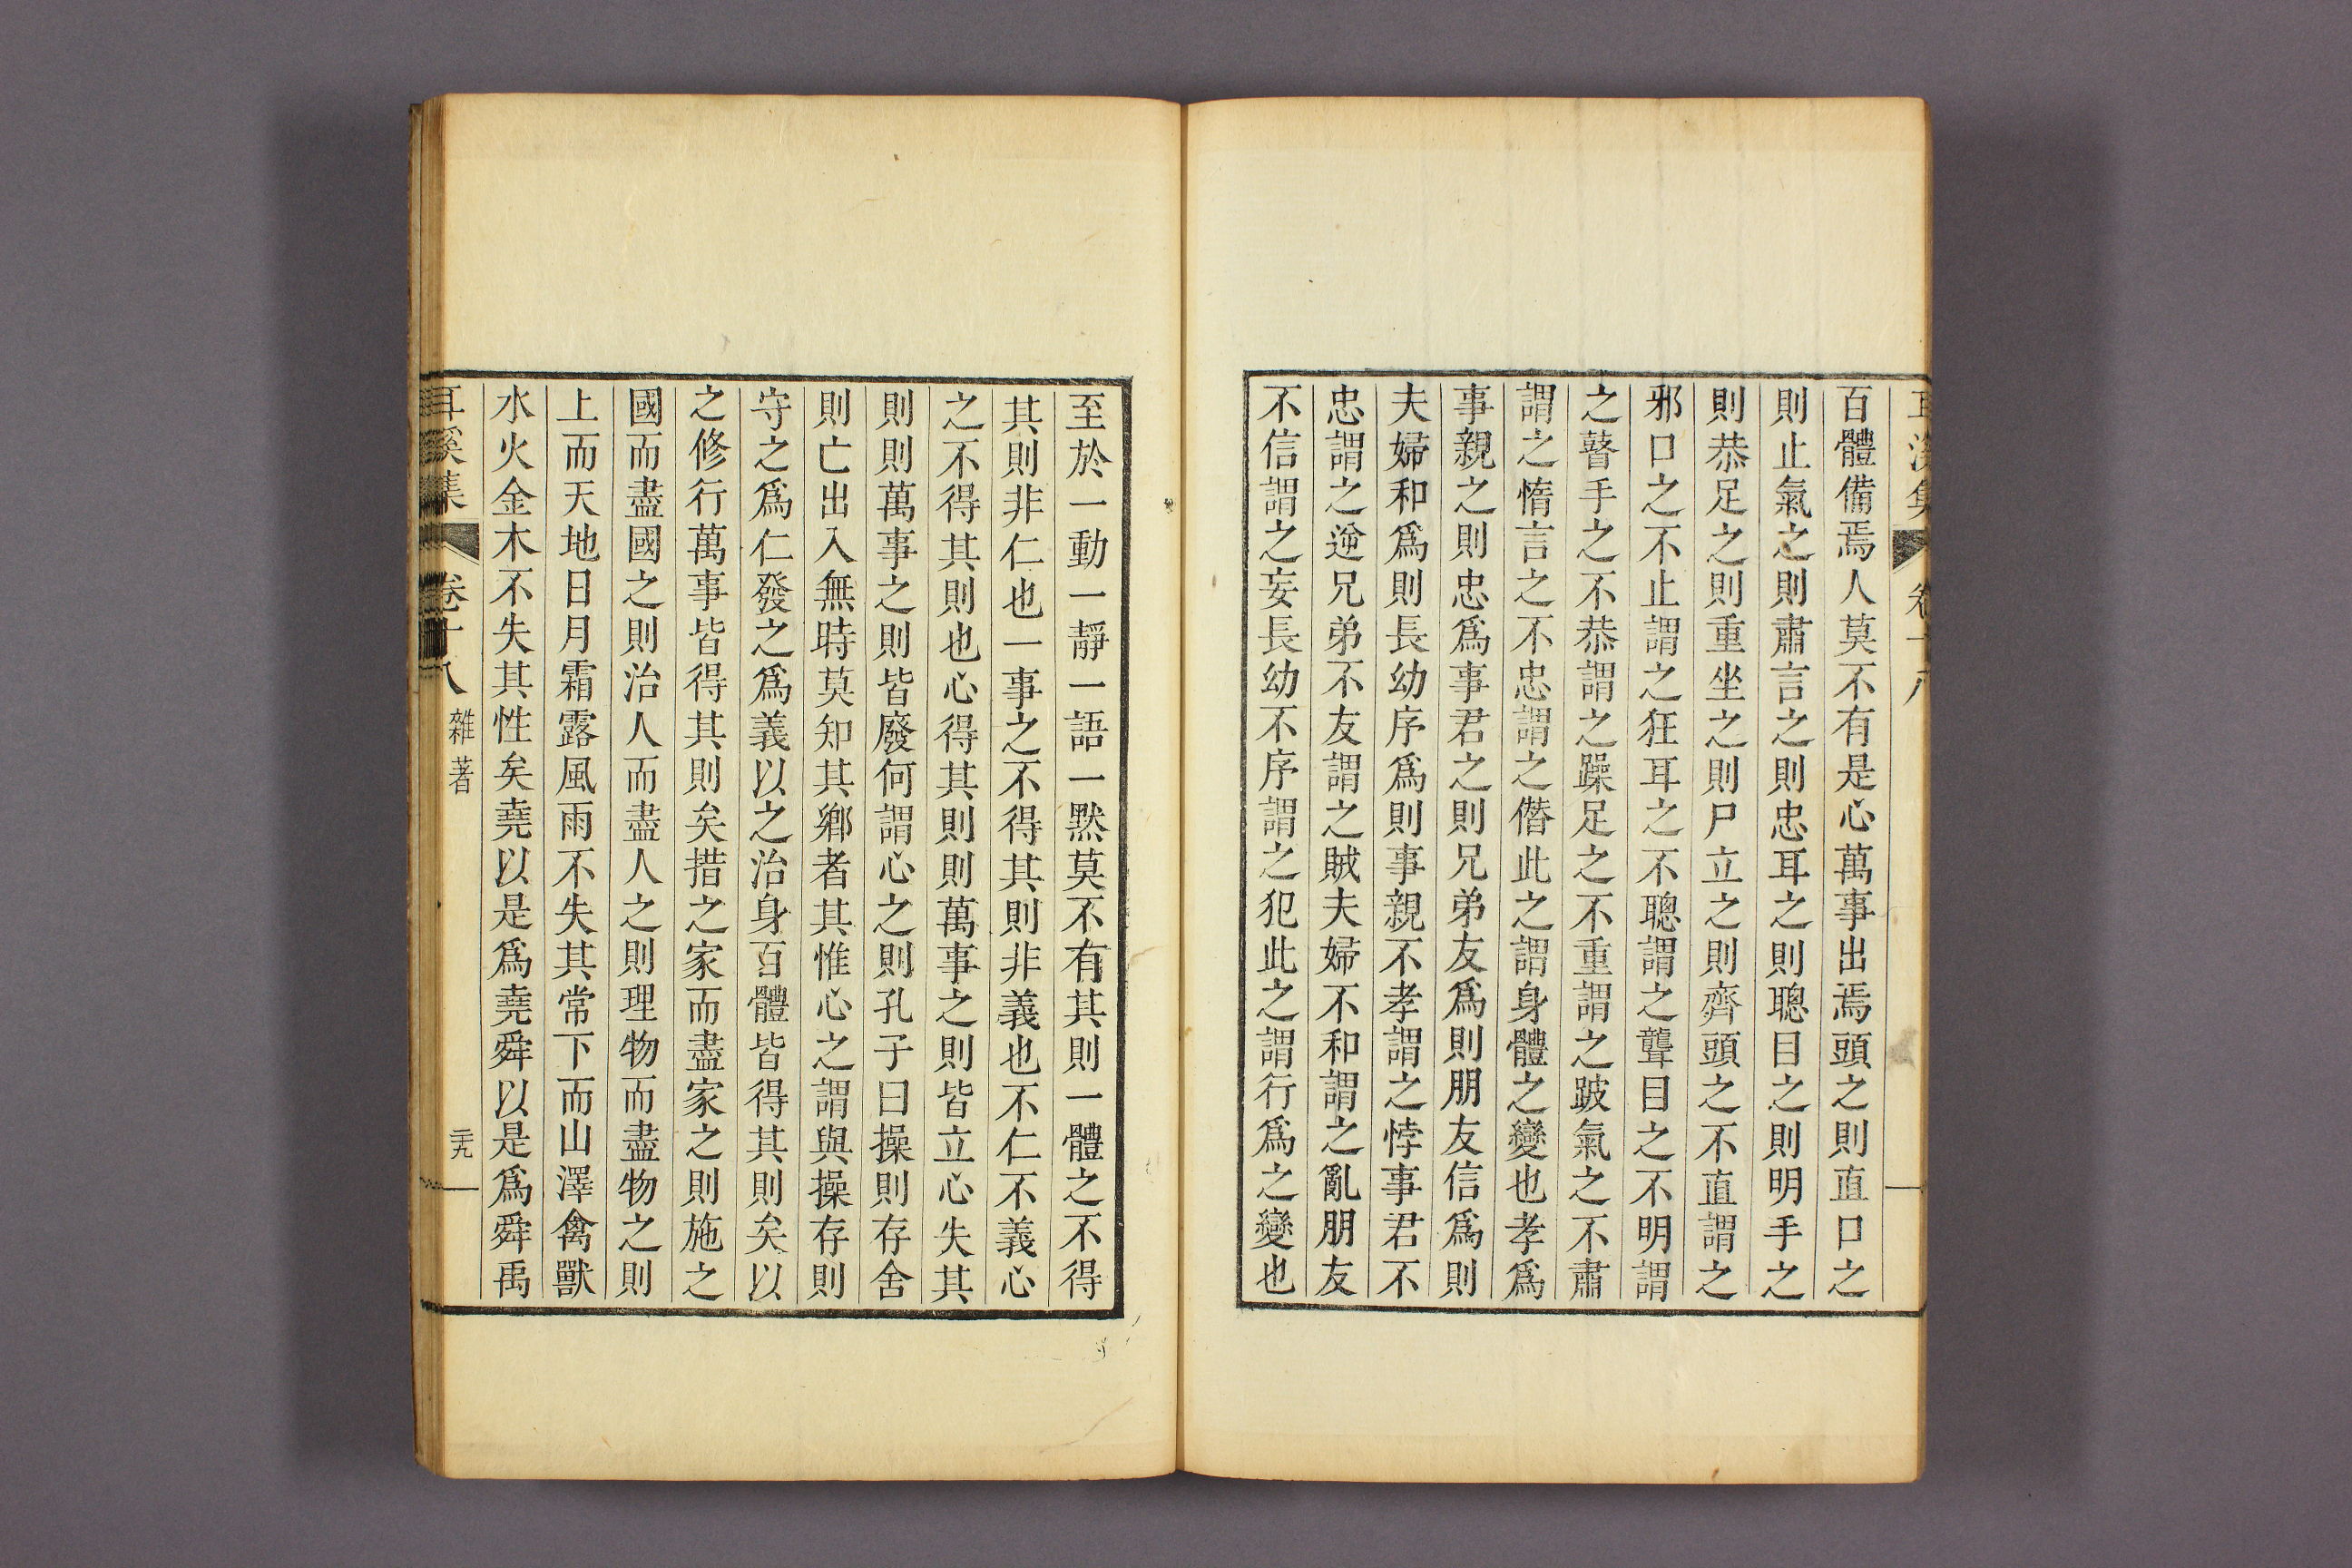 百體備焉人莫不有是心萬事出焉頭之則直口之
則止氣之則肅言之則忠耳之則聰目之則明手之
則恭足之則重坐之則尸立之則齊頭之不直謂之
邪口之不止謂之狂耳之不聰謂之聾目之不明謂
之瞽手之不恭謂之躁足之不重謂之跛氣之不肅
謂之惰言之不忠謂之僭此之謂身體之變也孝爲
事親之則忠爲事君之則兄弟友爲則朋友信爲則
夫婦和爲則長幼序爲則事親不孝謂之悖事君不
忠謂之逆兄弟不友謂之賊夫婦不和謂之亂朋友
不信謂之妄長幼不序謂之犯此之謂行爲之變也
至於一動一靜一語一默莫不有其則一體之不得
其則非仁也一事之不得其則非義也不仁不義心
之不得其則也心得其則則萬事之則皆立心失其
則則萬事之則皆廢何謂心之則孔子曰操則存舍
則亡出入無時莫知其鄉者其惟心之謂與操存則
守之爲仁發之爲義以之治身百體皆得其則矣以
之修行萬事皆得其則矣措之家而盡家之則施之
國而盡國之則治人而盡人之則理物而盡物之則
上而天地日月霜露風雨不失其常下而山澤禽獸
水火金木不失其性矣堯以是爲堯舜以是爲舜禹
耳溪集 卷十八 雜著 三九